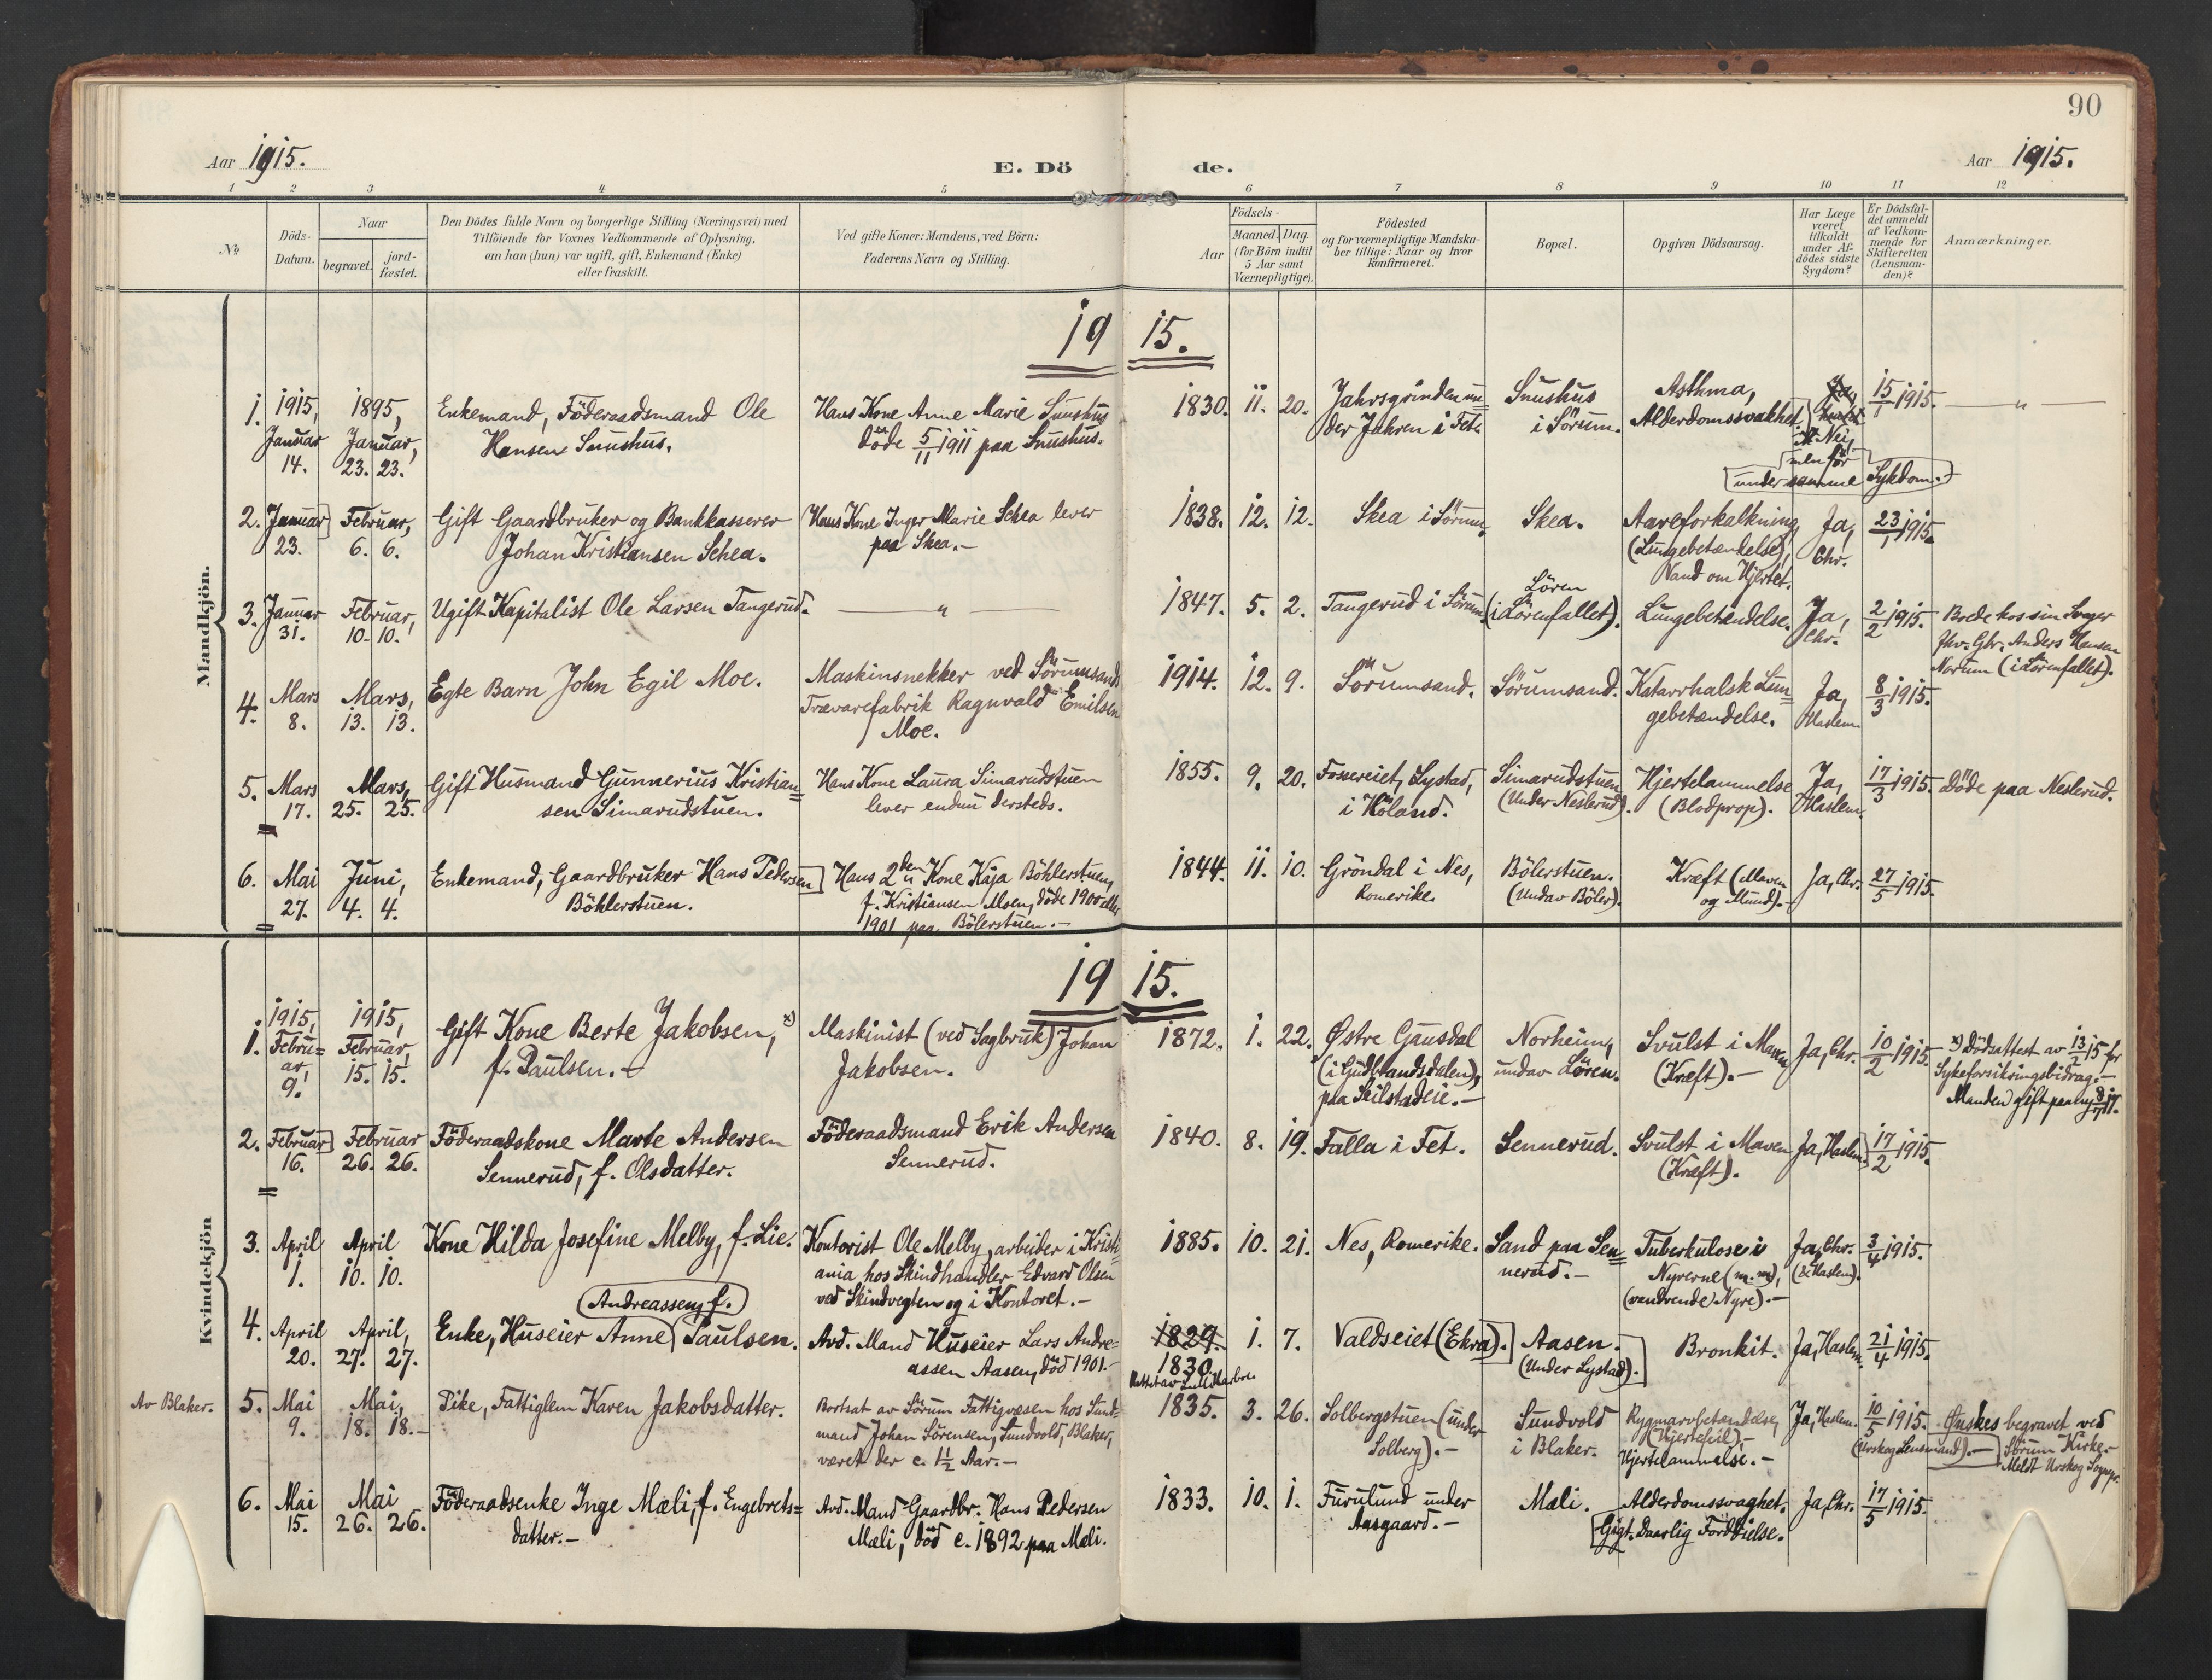 90
Aar 1915.
E. Dö
de.
Aar 1915.
1 2 3 4 5 6 7 8 9 10 11 12
No
Döds-
Datum.
Naar
begravet.
jord-
fæstet.
Den Dödes fulde Navn og borgerlige Stilling (Næringsvei) med
Tilföiende for Voxnes Vedkommende af Oplysning,
om han (hun) var ugift, gift, Enkemand (Enke)
eller fraskilt.
Ved gifte Koner: Mandens, ved Börn:
Faderens Navn og Stilling.
Födsels-
Aar
Maaned. Dag.
(for Börn indtil
5 Aar samt
Værnepligtige).
Födested
og for værnepligtige Mandska-
ber tillige: Naar og hvor
konfirmeret.
Bopæl.
Opgiven Dödsaarsag.
Har Læge
været
tilkaldt
under Af-
dödes sidste
Sygdom?
Er Dödsfal-
det anmeldt
af Vedkom-
mende for
Skifteretten
(Lensman-
den)?
Anmærkninger.
Mandkjön.
19 15.
1.
1915,
Januar
14.
1895,
Januar,
23. 23.
Enkemand, Föderaadsmand Ole
Hansen Snushus.
Hans Kone Anne Marie Snushus
döde 5/11 1911 paa Snushus.
1830. 11. 20.
Jahrsgrinden un=
der Jahren i Fet.
Snushus
i Sörum.
Asthma,
Alderdomssvakhet.
Ja,
Nei,
men för
under samme Sykdom.)
15/1 1915.
— " —
2.
Januar
23.
Februar,
6. 6.
Gift Gaardbruker og Bankkasserer
Johan Kristiansen Schea.
Hans Kone Inger Marie Schea lever
paa Skea.—
1838. 12. 12.
Skea i Sörum.
Skea.
Aareforkalkning,
(Lungebetændelse),
Vand om Hjertet.
Ja,
Chr.
23/1 1915.
3.
Januar
31.
Februar,
10. 10.
Ugift Kapitalist Ole Larsen Tangerud.
— " —
1847. 5. 2.
Tangerud i Sörum.
Lören
(i Lörenfallet).
Lungebetændelse.
Ja,
Chr.
2/2 1915.
Boede hos sin Svoger
fhv. Gbr. Anders Hansen
Norum (i Lörenfallet).
4.
Mars
8.
Mars,
13. 13.
Egte Barn John Egil Moe.
Maskinsnekker ved Sörumsand
Trævarefabrik Ragnvald Emilsen
Moe.
1914. 12. 9.
Sörumsand.
Sörumsand.
Katarrhalsk Lun=
gebetændelse.
Ja,
Haslem
8/3 1915.
5.
Mars
17.
Mars,
25. 25.
Gift Husmand Gunnerius Kristian=
sen Simarudstuen.
Hans Kone Laura Simarudstuen
lever endnu dersteds.
1855. 9. 20.
Fossereiet, Lystad,
i Höland.
Simarudstuen
(Under Neslerud).
Hjertelammelse
(Blodprop).
Ja,
Haslem.
17/3 1915.
Döde paa Neslerud.
6.
Mai
27.
Juni,
4. 4.
Enkemand, Gaardbruker Hans Pedersen
Böhlerstuen.
Hans 2den Kone Kaja Böhlerstuen,
f. Kristiansen Moen, döde 1900 eller
1901 paa Bölerstuen.—
1844. 11. 10.
Gröndal i Nes,
Romerike.
Bölerstuen.
(Undav Böler).
Kræft (Maven
og Mund).—
Ja, Chr.
27/5 1915.
Kvindekjön
19 15.
1.
1915,
Febru=
ar
9.
1915,
Februar,
15. 15.
Gift Kone Berte Jakobsen, x)
f. Paulsen.—
Maskinist (ved Sagbruk) Johan
Jakobsen.
1872. 1. 22.
Østre Gausdal
(i Gudbrandsdalen),
paa Skilstadeie.—
Norheim,
undav Lören.
Svulst i Maven
(Kræft).—
Ja, Chr.
10/2 1915.
x) Dödsattest av 13/2 15 for
Sykeforsikringsbidrag.—
Manden gift paany
2.
Februar
16.
Februar
26. 26.
Föderaadskone Marte Andersen
Sennerud, f. Olsdatter.
Föderaadsmand Erik Andersen
Sennerud.
1840. 8. 19.
Falla i Fet.
Sennerud.
Svulst i Maven
(Kræft).
Ja, Haslem.
17/2 1915.
3.
April
1.
April
10. 10.
Kone Hilda Josefine Melby, f. Lie.
Kontorist Ole Melby, arbeider i Kristi=
ania hos Skindhandler Edvard Olsen
ved Skindvegten og i Kontoret.—
1885. 10. 21.
Nes, Romerike.
Sand paa Sen=
nerud.—
Tuberkulose i
Nyrerne (m.m),
(vandrende Nyre).—
Ja, Chr.
(& Haslem).
3/4 1915.
4.
April
20.
April,
27. 27.
(Andreassen, f.)
Enke, Huseier Anne Paulsen.
Avd. Mand Huseier Lars Andre=
assen Aasen, död 1901.—
1829. 1. 7.
1830
Valdseiet (Ekra).
Aasen.
(Under Lystad).
Bronkit.
Ja, Haslem.
21/4 1915.
Av Blaker.
5.
Mai
9.
Mai,
18. 18.—
Pike, Fattiglem Karen Jakobsdatter.
Bortsat av Sörum Fattigvæsen hos Sund=
mand Johan Sörensen, Sundvold, Blaker,
været der c. 1½ Aar.—
1835. 3. 26.
Solbergstuen (under
Solberg).—
Sundvold
i Blaker.
Rygmarvbetændelse,
(Hjertefeil),—
Hjertelammelse.—
Ja, Haslem.
10/5 1915.
(Urskog Lensmand).—
Ønskes begravet ved
Sörum Kirke.—
Meldt Urskog Sognepr.
6.
Mai
15.
Mai
26. 26.
Föderaadsenke Inge Mæli, f. Engebrets=
datter.—
Avd. Mand Gaardbr. Hans Pedersen
Mæli, död c. 1892 paa Mæli.
1833. 10. 1.
Furulund under
Aasgaard.—
Mæli.
Alderdomssvaghet.
Gigt. Daarlig Fordöielse.
Ja, Chr.
17/5 1915.